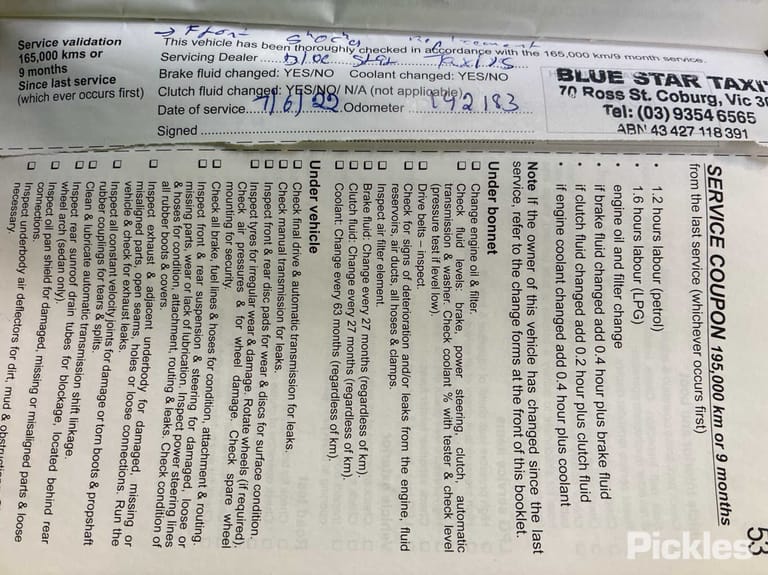 → Front Shocks Replacement
Service validation
165,000 kms or
9 months
Since last service
(which ever occurs first)
This vehicle has been thoroughly checked in accordance with the 165,000 km/9 month service.
Servicing Dealer Blue Star Taxi's
Brake fluid changed: YES/NO Coolant changed: YES/NO
Clutch fluid changed: YES/NO/ N/A (not applicable)
Date of service 7/6/22 Odometer 192183
Signed
BLUE STAR TAXI
70 Ross St. Coburg, Vic
Tel: (03) 9354 6565
ABN 43 427 118 391
53
SERVICE COUPON 195,000 km or 9 months
from the last service (whichever occurs first)
• 1.2 hours labour (petrol)
• 1.6 hours labour (LPG)
engine oil and filter change
• if brake fluid changed add 0.4 hour plus brake fluid
• if clutch fluid changed add 0.2 hour plus clutch fluid
• if engine coolant changed add 0.4 hour plus coolant
Note If the owner of this vehicle has changed since the last
service, refer to the change forms at the front of this booklet.
Under bonnet
Change engine oil & filter.
Check fluid levels: brake, power steering, clutch, automatic
transmission & washer. Check coolant % with tester & check level
(pressure test if level low).
Drive belts – inspect.
Check for signs of deterioration and/or leaks from the engine, fluid
reservoirs, air ducts, all hoses & clamps.
Inspect air filter element.
Brake fluid: Change every 27 months (regardless of km).
Clutch fluid: Change every 27 months (regardless of km).
Coolant: Change every 63 months (regardless of km).
Under vehicle
Check final drive & automatic transmission for leaks.
Check manual transmission for leaks.
Inspect front & rear disc pads for wear & discs for surface condition.
Inspect tyres for irregular wear & damage. Rotate wheels (if required).
Check air pressures & for wheel damage. Check spare wheel
mounting for security.
Check all brake, fuel lines & hoses for condition, attachment & routing.
Inspect front & rear suspension & steering for damaged, loose or
missing parts, wear or lack of lubrication. Inspect power steering lines
& hoses for condition, attachment, routing & leaks. Check condition of
all rubber boots & covers.
Inspect exhaust & adjacent underbody for damaged, missing or
misaligned parts, open seams, holes or loose connections. Run the
vehicle & check for exhaust leaks.
Inspect all constant velocity joints for damage or torn boots & propshaft
rubber couplings for tears & splits.
Clean & lubricate automatic transmission shift linkage.
Inspect rear sunroof drain tubes for blockage, located behind rear
wheel arch (sedan only).
Inspect oil pan shield for damaged, missing or misaligned parts & loose
connections.
Inspect underbody air deflectors for dirt, mud &
necessary.
Pickles